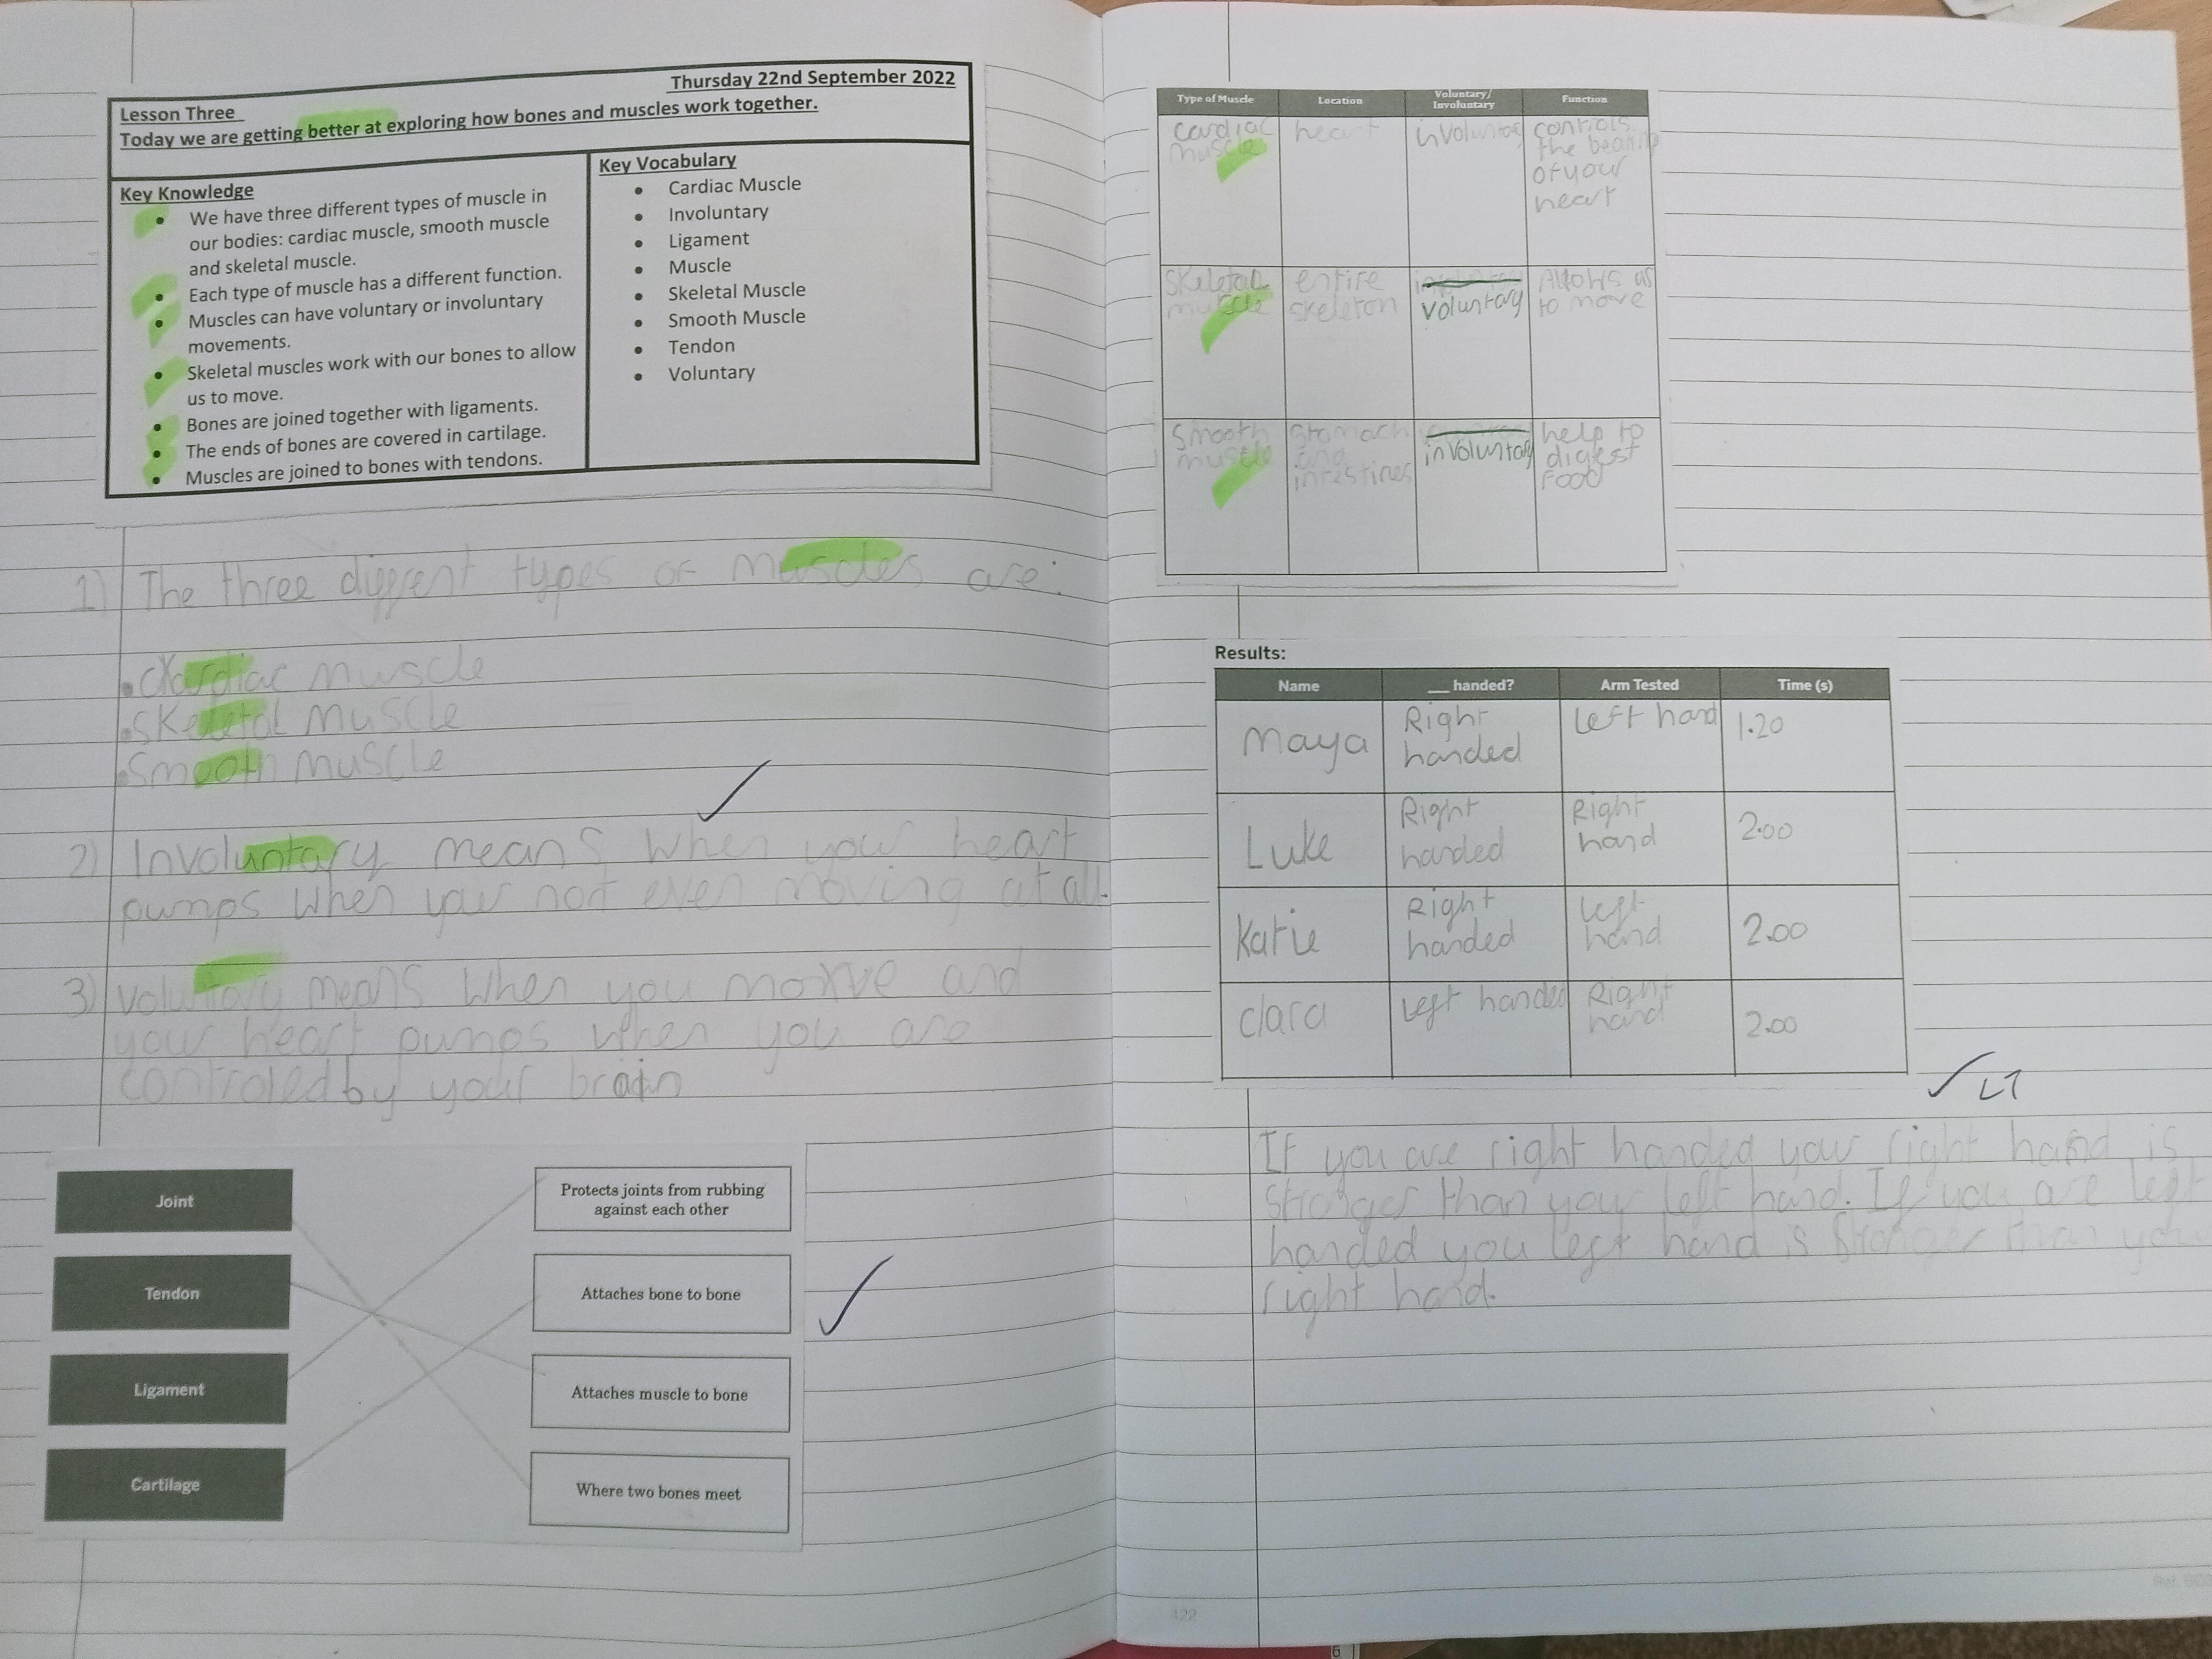 Thursday 22nd September 2022
Lesson Three
Today we are getting better at exploring how bones and muscles work together.
Key Knowledge
• We have three different types of muscle in
our bodies: cardiac muscle, smooth muscle
and skeletal muscle.
• Each type of muscle has a different function.
• Muscles can have voluntary or involuntary
movements.
• Skeletal muscles work with our bones to allow
us to move.
• Bones are joined together with ligaments.
• The ends of bones are covered in cartilage.
• Muscles are joined to bones with tendons.
Key Vocabulary
• Cardiac Muscle
• Involuntary
• Ligament
• Muscle
• Skeletal Muscle
• Smooth Muscle
• Tendon
• Voluntary
1) The three diffrent types of muscles are:
• Cardiac muscle
• Skeletal muscle
• Smooth muscle
2) Involuntary means when your heart
pumps when your not even moving at all.
3) voluntary means when you move and
your heart pumps when you are
controled by your brain
Joint
Tendon
Ligament
Cartilage
Protects joints from rubbing
against each other
Attaches bone to bone
Attaches muscle to bone
Where two bones meet
Type of Muscle Location Voluntary/ Involuntary Function
cardiac muscle heart involuntary controls the beating of your heart
Skeletal muscle entire skeleton voluntary Allows us to move
Smooth muscle stomach and intestines involuntary help to digest food
Results:
Name __ handed? Arm Tested Time (s)
Maya Right handed Left hand 1.20
Luke Right handed Right hand 2.00
Katie Right handed Left hand 2.00
Clara Left handed Right hand 2.00
LT
If you are right handed your right hand is
stronger than your left hand. If you are left
handed you left hand is stronger than your
right hand.
122